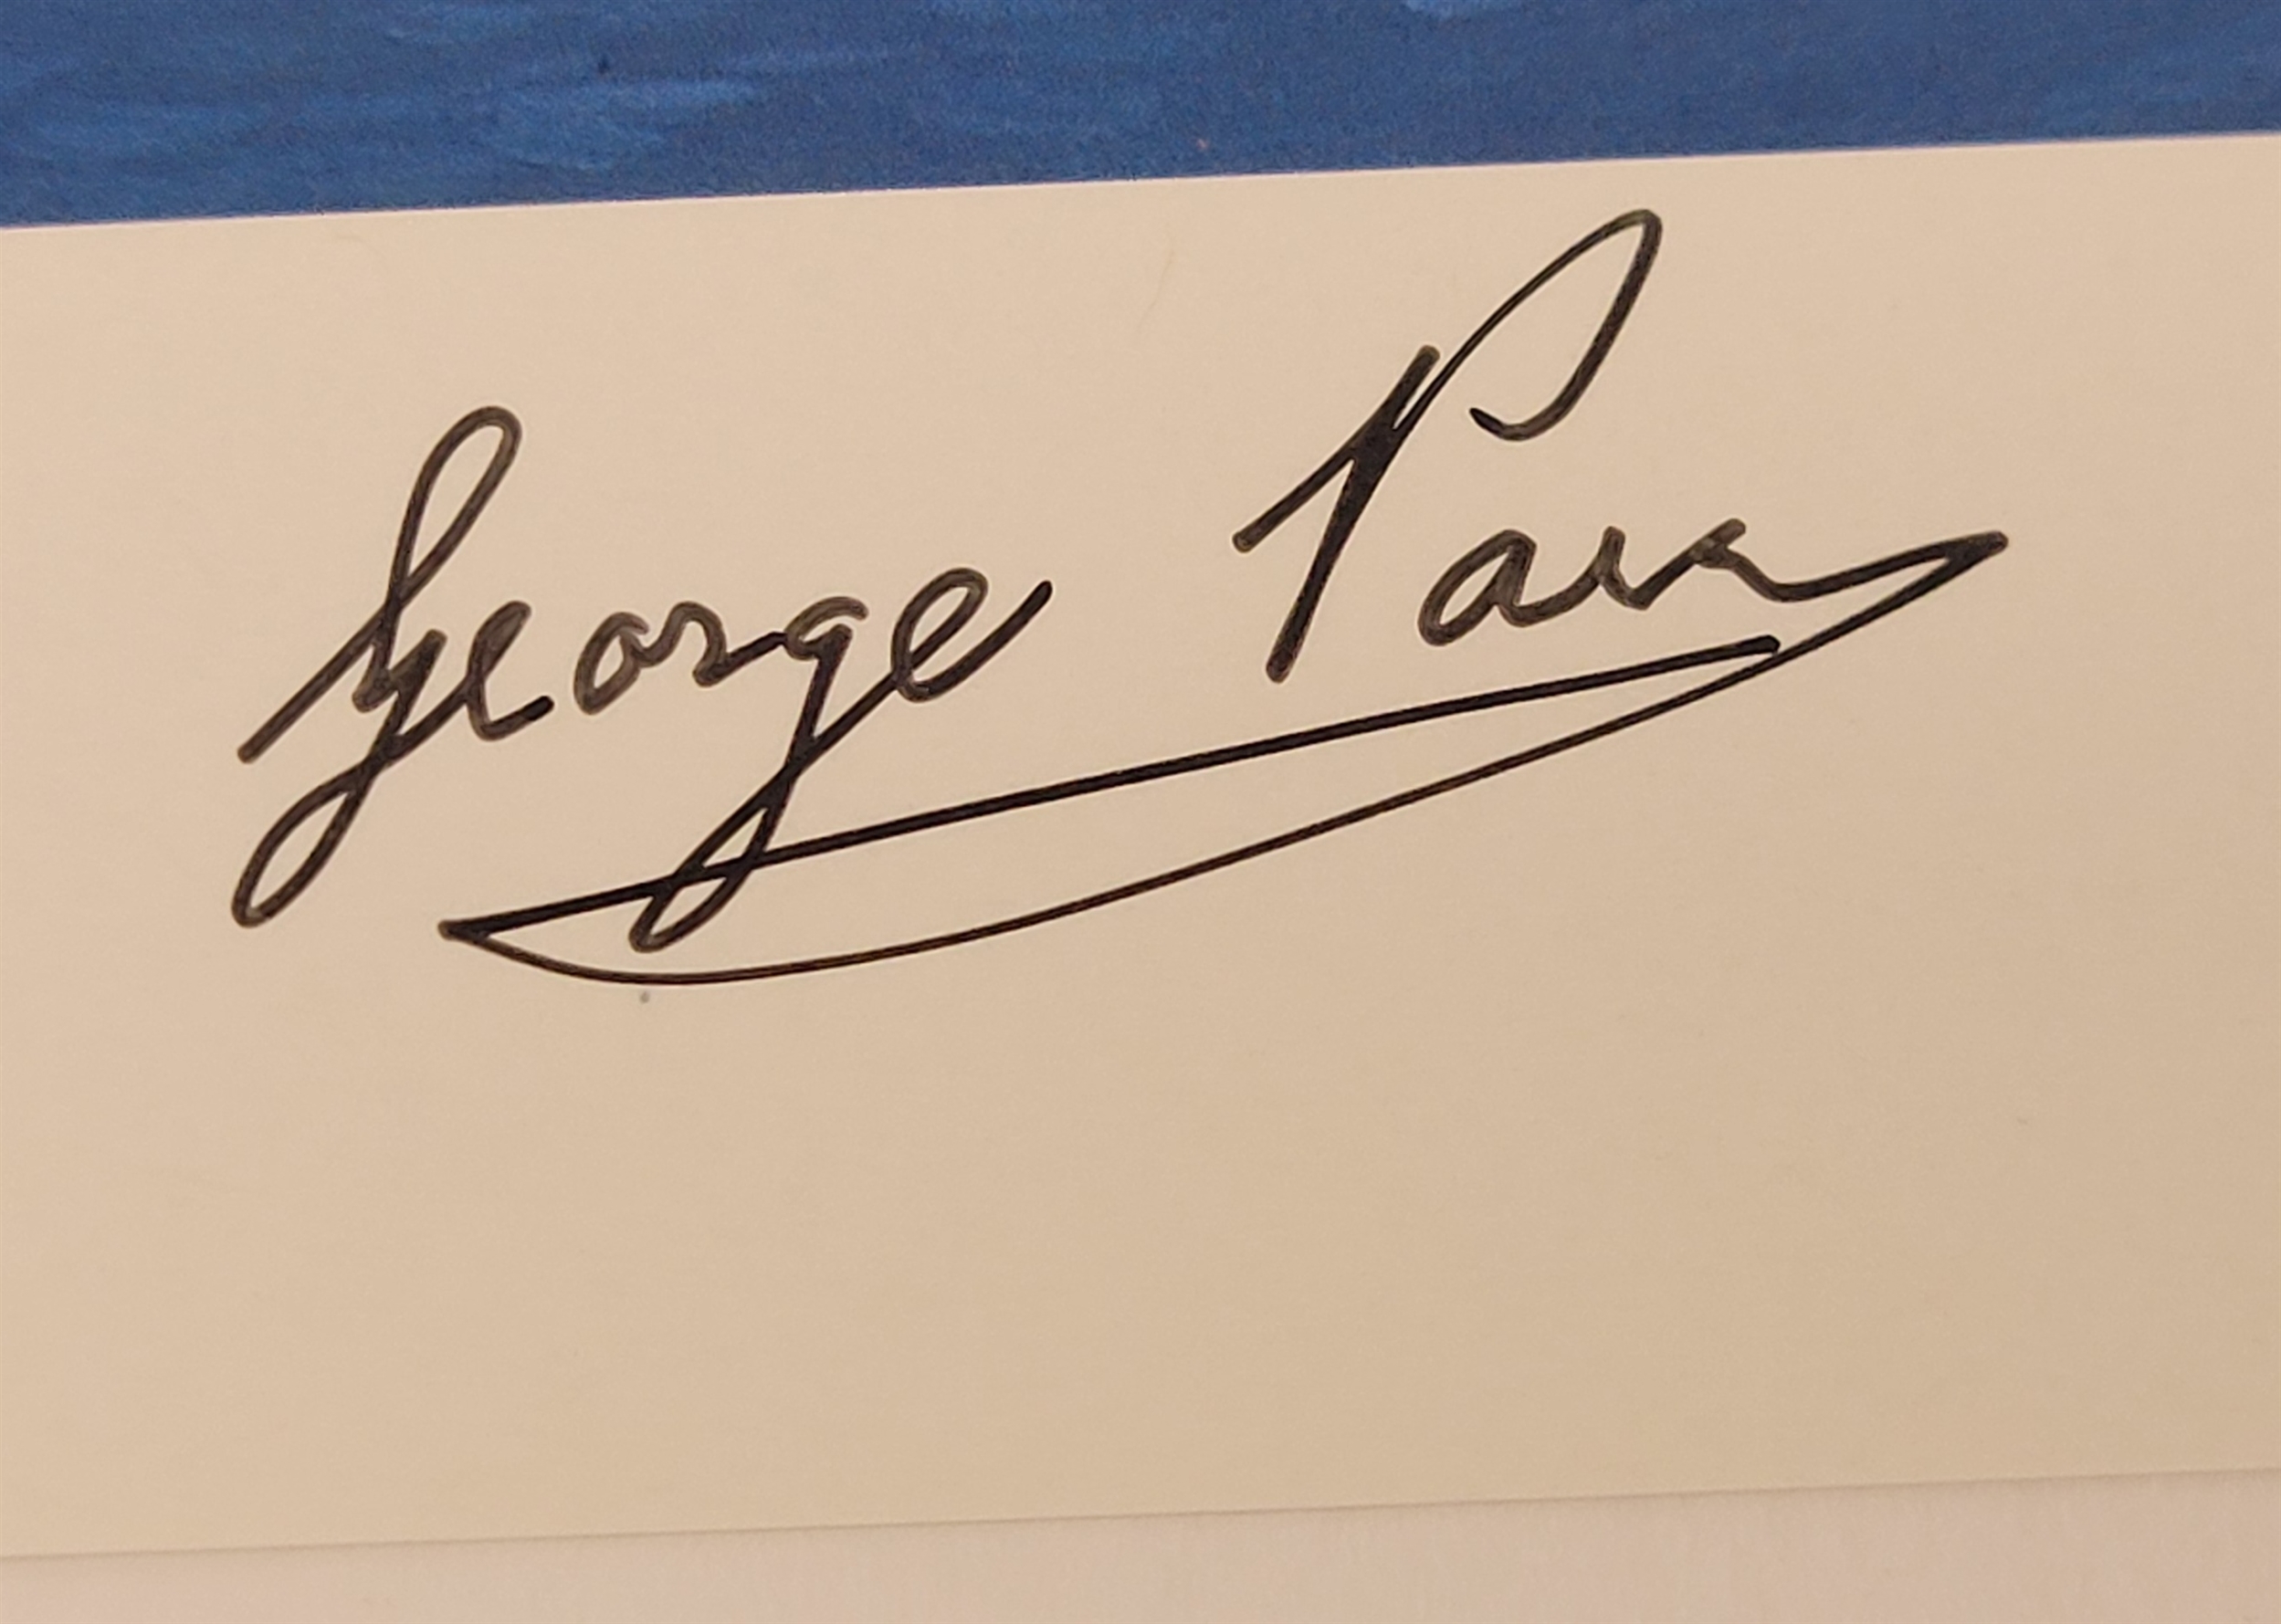 George Parr